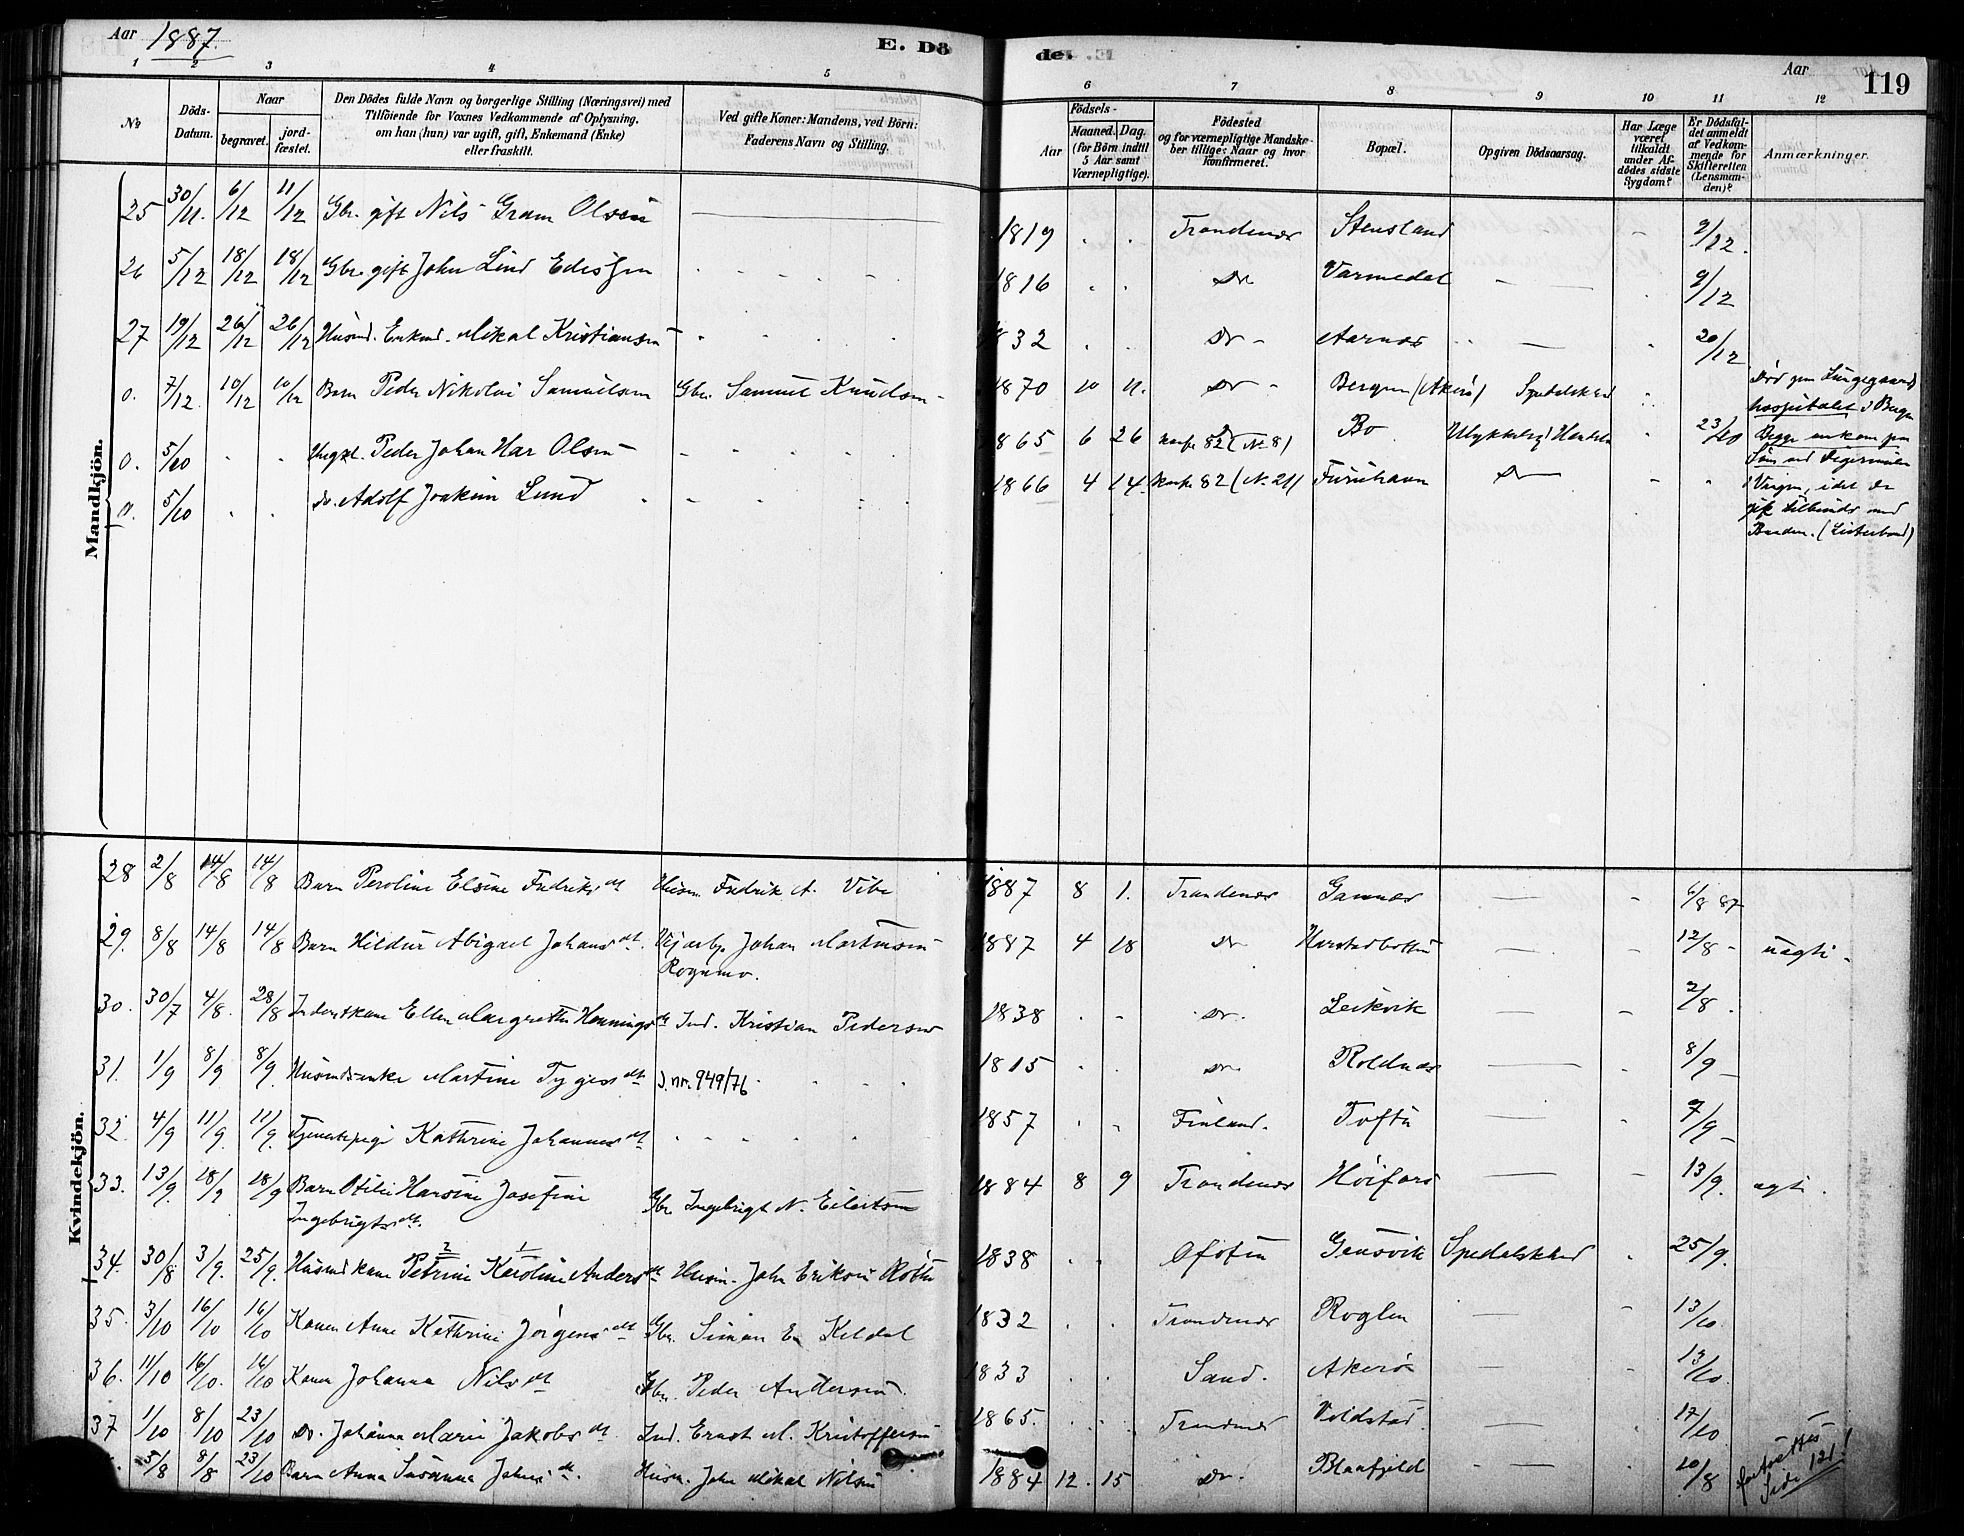 Aar 1887.
E. Dö
de.
Aar
119
1 2 3 4 5 6
6 7 8 9 10 11 12
No
Döds-Datum.
Naar
begravet.
jord-fæstet.
Den Dödes fulde Navn og borgerlige Stilling (Næringsvei) med
Tilföiende for Voxnes Vedkommende af Oplysning,
om han (hun) var ugift, gift, Enkemand (Enke)
eller fraskilt.
Ved gifte Koner: Mandens, ved Börn:
Faderens Navn og Stilling.
Födsels-
Aar
Maaned. Dag.
(for Börn indtil
5 Aar samt
Værnepligtige).
Födested
og for værnepligtige Mandska-
ber tillige: Naar og hvor
konfirmeret.
Bopæl.
Opgiven Dödsaarsag.
Har Læge
været
tilkaldt
under Af-
dödes sidste
Sygdom?
Er Dödsfal-
det anmeldt
af Vedkom-
mende for
Skifteretten
(Lensman-
den)?
Anmærkninger.
Mandkjön.
25 30/11. 6/12 11/12 Gbr. gift Nils Gram Olsen — 1819 . . Trondenæs Stensland - 2/12.
26 5/12 18/12 18/12 Gbr. gift John Lind 1816 . . Do Varmedal - — 9/12
27 19/12 26/12 26/12 Husmd. Enkmd. Mikal Kristiansen 1832 . . Do - Aarnæs — 20/12
0. 7/12. 10/12 10/12 Barn Peder Nikolai Samuelsen Gbr. Samuel Knudsen 1870 10 11. Do - Bergen (Akerö) Spedalskhed Död paa Lungegaards
hospitalet i Bergen
0. 5/10 . . Ungkl. Peder Johan Olsen 1865 6 26 konf. 82 (No. 8) Bo 23/10 Begge omkom paa
0. 5/10 . . do. Adolf Joakim Lund 1866 4 14. konf. 82 (No. 21) Furuhavn Do — i Vaagen, idet de
gik tilbunds med
Baaden.
Kvindekjön.
28 2/8 14/8 14/8 Barn Peroline Elsine Fredriksdt Husm. Fredrik A. Vibe 1887 8 1. Trondenæs Gannæs — 6/8 87
29. 8/8 14/8 14/8 Barn Hildur Abigael Johansdt. Johan Martinsen
Rognmo. 1887 4 18 Do Harstadbotten — 12/8 - uægte -
30. 30/7 4/8. 28/8 Inderstkone Ellen Margrethe Henningsdt Ind. Kristian Pedersen 1838 . - Do. Leikvik — 2/8.
31. 1/9 8/9 8/9. Husmdsenke Martine Tygesdt J.nr. 949/76 1815 . . Do. Roldnæs — 8/9 -
32. 4/9 11/9 11/9. Tjenestepige Kathrine Johannesdt 1857 . . Finland. Toften 7/9 -
33. 13/9. 18/9 18/9 Barn Otilie Hansine Josefine
Ingebrigtsdt. Gbr. Ingebrigt N. Eilertsen 1884 8 9 Trondenæs Höifors — 13/9. ægte.
34. 30/8 3/9. 25/9. Husmd kone Petrine Karoline Andersdt Husm. John Eriksen 1838 . . Ofoten Gausvik Spedalskhed . 25/9.
35. 3/10 16/10 16/10 Konen Anne Kathrine Jörgensdt Gbr. Simon Keldal 1832 . . Trondenæs Roglen — 13/10.
36. 11/10 16/10. 16/10 Konen Johanna Nilsdt Gbr. Peder Andersen. 1833 . . Sand. Akerö — 13/10
37 1/10 8/10 23/10 Do. Johanna Marie Jakobsdt Ind. Ernst M. Kristoffersen 1865. . . Trondenæs Voldstad — 17/10
5/8 8/8 23/10 Barn Anna Susanna Johnsdt. Husm. John Mikal Nilsen 1884 12. 15 Do. Blaafjeld — 10/8 fortsættes
Side 121!